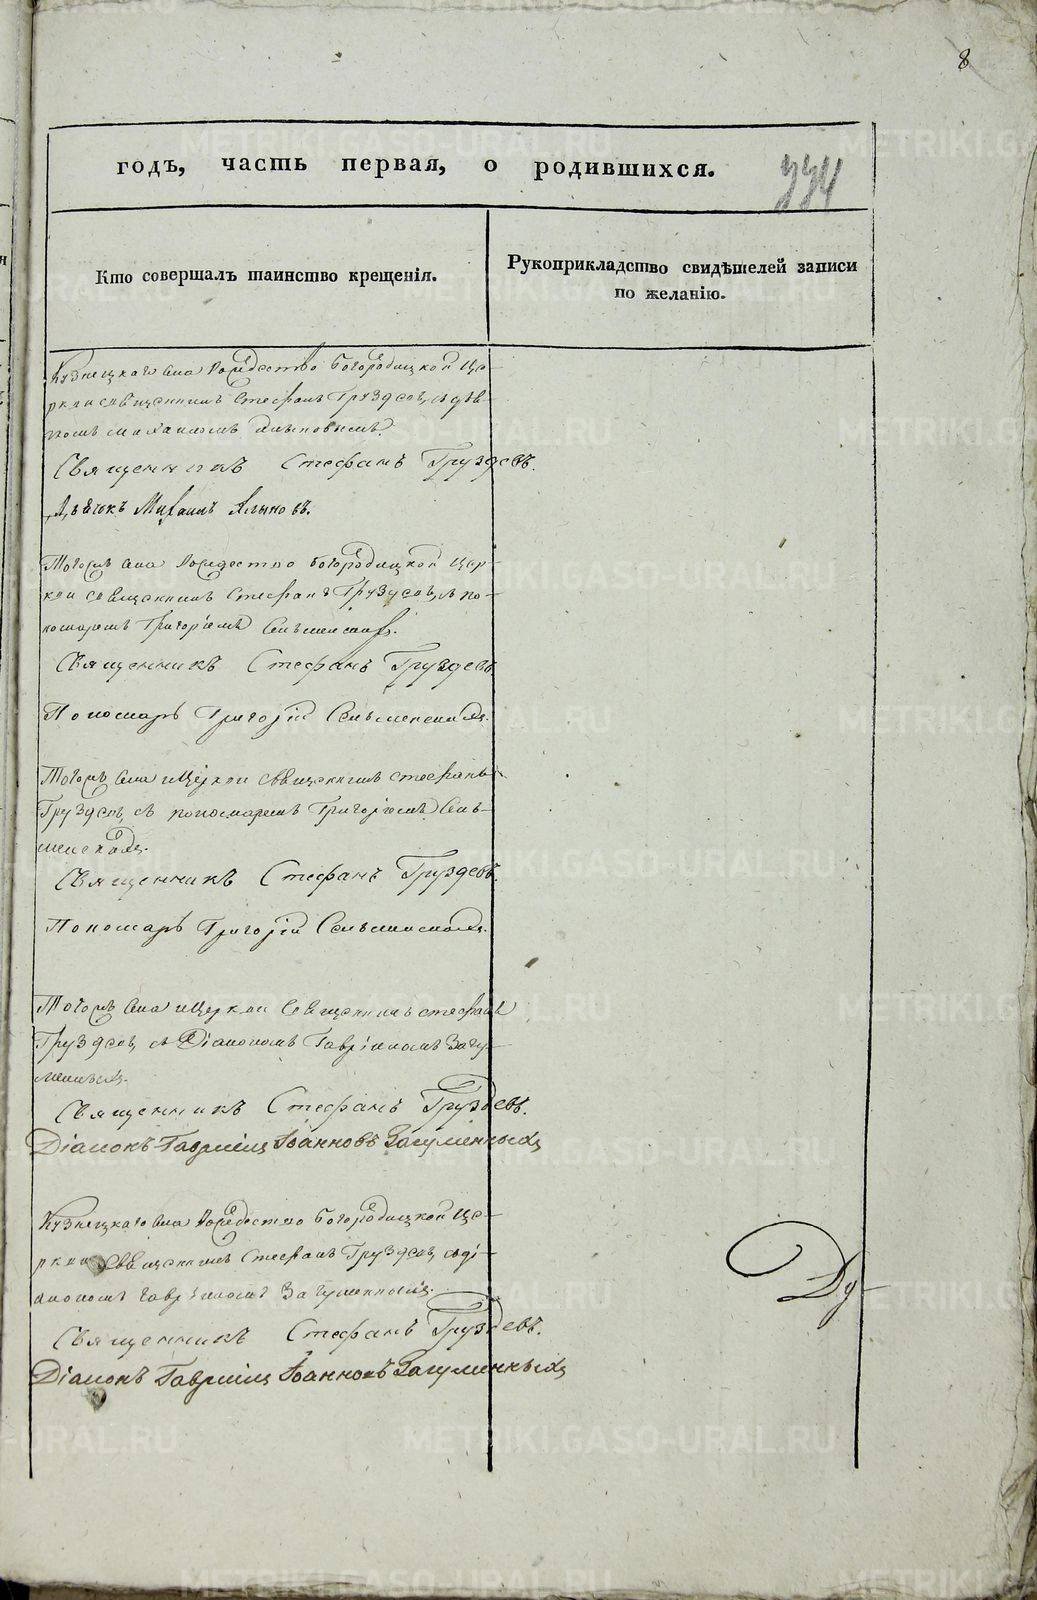 8
годъ, часть первая, о родившихся.
334
Кто совершалъ таинство крещенія.
Рукоприкладство свидѣтелей записи
по желанію.
Кузнецкаго села Рождество Богородицкой це-
ркви священникъ Стефанъ Груздевъ, съ дьяч-
комъ Михаиломъ
Священникъ Стефанъ Груздевъ.
Дьячокъ Михаилъ
Тогожъ села Рождество Богородицкой цер-
кви священникъ Стефанъ Груздевъ, съ по-
номаремъ Григоріемъ
Священникъ Стефанъ Груздевъ
Пономарь Григорій
Тогожъ села и церкви священникъ Стефанъ
Груздевъ, съ пономаремъ Григоріемъ
Священникъ Стефанъ Груздевъ.
Пономарь Григорій
Тогожъ села и церкви священникъ Стефанъ
Груздевъ, съ діакономъ Гавріиломъ Загу-
менныхъ.
Священникъ Стефанъ Груздевъ.
Діаконъ Гавріилъ Іоанновъ Загуменныхъ
Кузнецкаго села Рождество Богородицкой це-
ркви священникъ Стефанъ Груздевъ, съ ді-
акономъ Гавріиломъ Загуменныхъ.
Священникъ Стефанъ Груздевъ.
Діаконъ Гавріилъ Іоанновъ Загуменныхъ
Ду-
METRIKI.GASO-URAL.RU